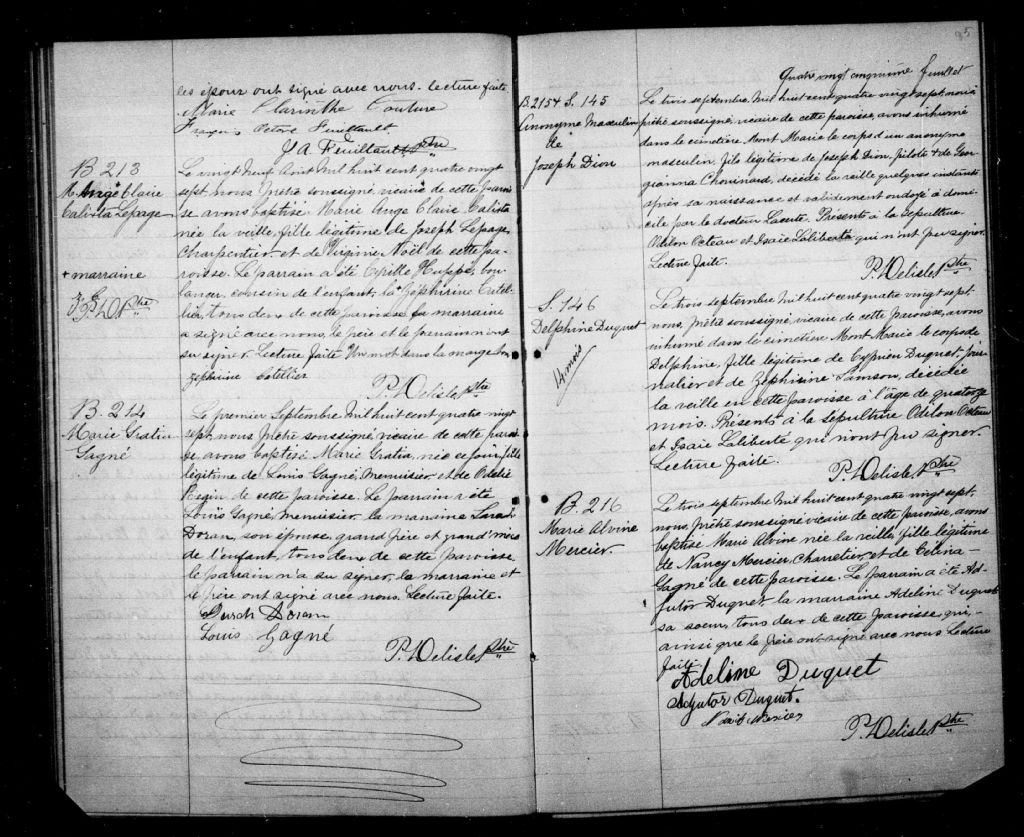 les époux ont signé avec nous. Lecture faite
Marie Clarinthe Couture
François Octave Feuiltault
J A Feuiltault Ptre
B. 213
M. Ange Claire
Calixta Lepage
+ marraine
P. D. Ptre
Le vingt neuf Aout Mil huit cent quatre vingt
sept, nous Prêtre soussigné, vicaire de cette parois
se, avons baptisé Marie Ange Claire Calixta
née la veille, fille légitime de Joseph Lepage,
Charpentier, et de Virginie Noël de cette pa-
roisse. Le parrain a été Cyrille Huppé, bou-
langer, cousin de l'enfant, la + Zéphirine Cutel-
lier, tous deux de cette paroisse. La marraine
a signé avec nous, le père et le parrain n'ont
su signer. Lecture faite. Un mot dans la marge bon
Zéphirine Cotellier
P. Delisle Ptre
B. 214
Marie Gratia
Gagné
Le premier Septembre Mil huit cent quatre vingt
sept, nous Prêtre soussigné, vicaire de cette parois
se, avons baptisé Marie Gratia, née ce jour, fille
légitime de Louis Gagné, Menuisier, et de Odélie
Begin de cette paroisse. Le parrain a été
Louis Gagné, menuisier, la marraine Sarah
Doran, son épouse, grand père et grand'mère
de l'enfant, tous deux de cette paroisse,
le parrain n'a su signer, la marraine et
le père ont signé avec nous. Lecture faite.
Doran
Louis Gagné
P. Delisle Ptre
95
Quatre vingt cinquième feuillet
B. 215 + S. 145
Anonyme Masculin
de
Joseph Dion
Le trois septembre, Mil huit cent quatre vingt sept, nous
prêtre soussigné, vicaire de cette paroisse, avons inhumé
dans le cimetière Mont Marie le corps d'un anonyme
masculin, fils légitime de Joseph Dion, pilote + de Geor-
gianna Chouinard, décédé la veille quelques instants
après sa naissance et validement ondoyé à domi-
cile par le docteur Lacerte. Présents à la sépulture
Odilon Octeau et Isaïe Laliberté qui n'ont pu signer.
Lecture faite.
P. Delisle Ptre
S. 146
Delphine Duquet
14 mois
Le trois septembre, Mil huit cent quatre vingt sept,
nous, Prêtre soussigné, vicaire de cette paroisse, avons
inhumé dans le cimetière Mont Marie le corps de
Delphine, fille légitime de Cyprien Duquet, jour-
nalier et de Zéphirine Samson, décédée
la veille en cette paroisse à l'âge de quatorze
mois. Présents à la sépulture Odilon Octeau
et Isaïe Laliberté qui n'ont pu signer.
Lecture faite.
P. Delisle Ptre
B. 216
Marie Alvine
Mercier
Le trois septembre Mil huit cent quatre vingt sept,
nous, Prêtre soussigné vicaire de cette paroisse, avons
baptisé Marie Alvine née la veille, fille légitime
de Nancy Mercier, Charretier, et de Célina
Gagné de cette paroisse. Le parrain a été Ad-
jutor Duquet, la marraine Adeline Duquet
sa soeur, tous deux de cette paroisse, qui,
ainsi que le père ont signé avec nous. Lecture
faite.
Adeline Duquet
Adjutor Duquet.
Mercier
P. Delisle Ptre